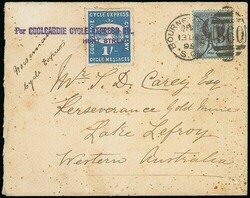 Per COOLGARDIE CYCLE EXPRESS Co
CYCLE EXPRESS
1/-
CYCLE MESSAGE
HUNT STREET
BOURNE
95
Norseman
Cycle Express
Mr. T. D. Carey Esq
Perseverance Gold Mine
Lake Lefroy
Western Australia